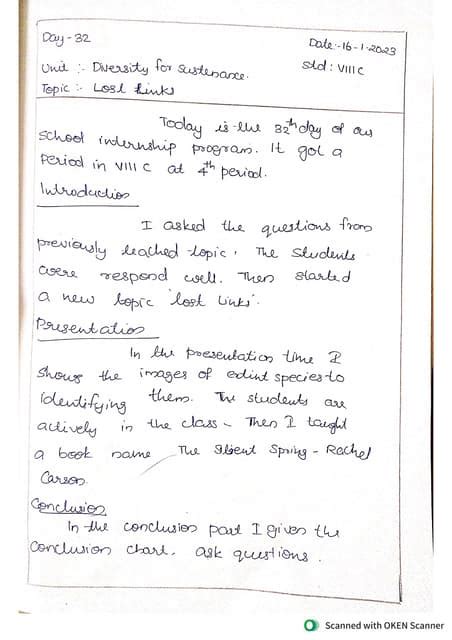 Day-32
Date:-16-1-2023
Unit :- Diversity for Sustenance.
Std : VIII C
Topic :- Lost Links
Today is the 32th day of our
school internship program. It got a
Period in VIII C at 4th period.
Introduction
I asked the questions from
previously teached topic. The students
were respond well. Then started
a new topic 'lost links'.
Presentation
In the presentation time I
shows the images of edint species to
identifying them. The students are
actively in the class - Then I taught
a book name The Silent Spring - Rachel
Carson.
Conclusion
In the conclusion part I given the
conclusion chart, ask questions.
Scanned with OKEN Scanner